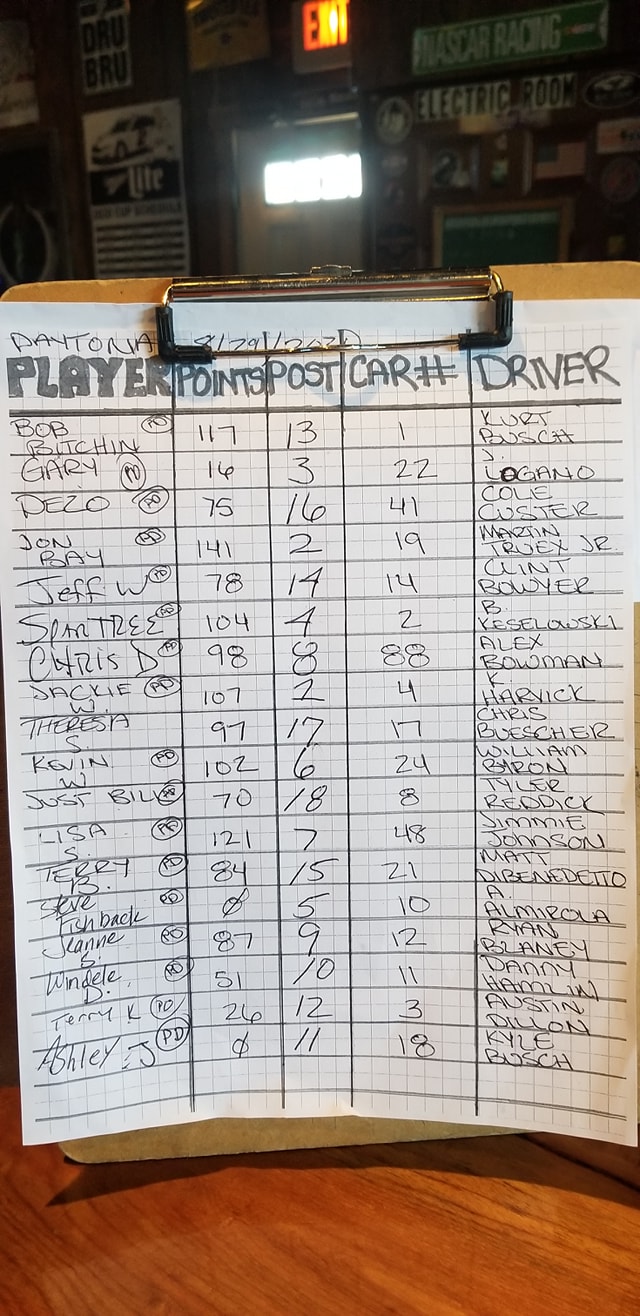 DRU
BRU
EXIT
NASCAR RACING
ELECTRIC ROOM
Lite
DAYTONA 8/29/2020
PLAYER POINTS POST CAR# DRIVER
BOB BITCHIN PD 117 13 1 KURT BUSCH
GARY PD 16 3 22 J. LOGANO
DEZO PD 75 16 41 COLE CUSTER
JON BAY PD 141 2 19 MARTIN TRUEX JR.
Jeff W PD 78 14 14 CLINT BOWYER
SPARTREE PD 104 4 2 B. KESELOWSKI
CHRIS D PD 98 8 88 ALEX BOWMAN
JACKIE W. PD 107 2 4 K. HARVICK
THERESA S. 97 17 17 CHRIS BUESCHER
KEVIN W PD 102 6 24 WILLIAM BYRON
JUST BILL PD 70 18 8 TYLER REDDICK
LISA S. PD 121 7 48 JIMMIE JOHNSON
TERRY B. PD 84 15 21 MATT DIBENEDETTO
Steve Fishback PD Ø 5 10 A. ALMIROLA
Jeanne S. PD 87 9 12 RYAN BLANEY
Windele D. PD 51 10 11 DANNY HAMLIN
Terry K PD 26 12 3 AUSTIN DILLON
Ashley J PD Ø 11 18 KYLE BUSCH